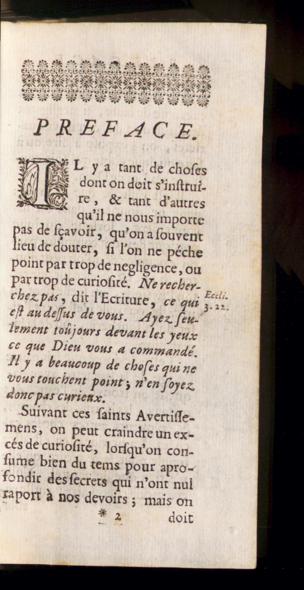 PREFACE.
IL y a tant de choses
dont on doit s'instrui-
re, & tant d'autres
qu'il ne nous importe
pas de sçavoir, qu'on a souvent
lieu de douter, si l'on ne péche
point par trop de negligence, ou
par trop de curiosité. Ne recher-
chez pas, dit l'Ecriture, ce qui
est au dessus de vous. Ayez seu-
lement toûjours devant les yeux
ce que Dieu vous a commandé.
Il y a beaucoup de choses qui ne
vous touchent point; n'en soyez
donc pas curieux.
Eccli.
3. 22.
Suivant ces saints Avertisse-
mens, on peut craindre un ex-
cés de curiosité, lorsqu'on con-
sume bien du tems pour apro-
fondir des secrets qui n'ont nul
raport à nos devoirs; mais on
* 2 doit